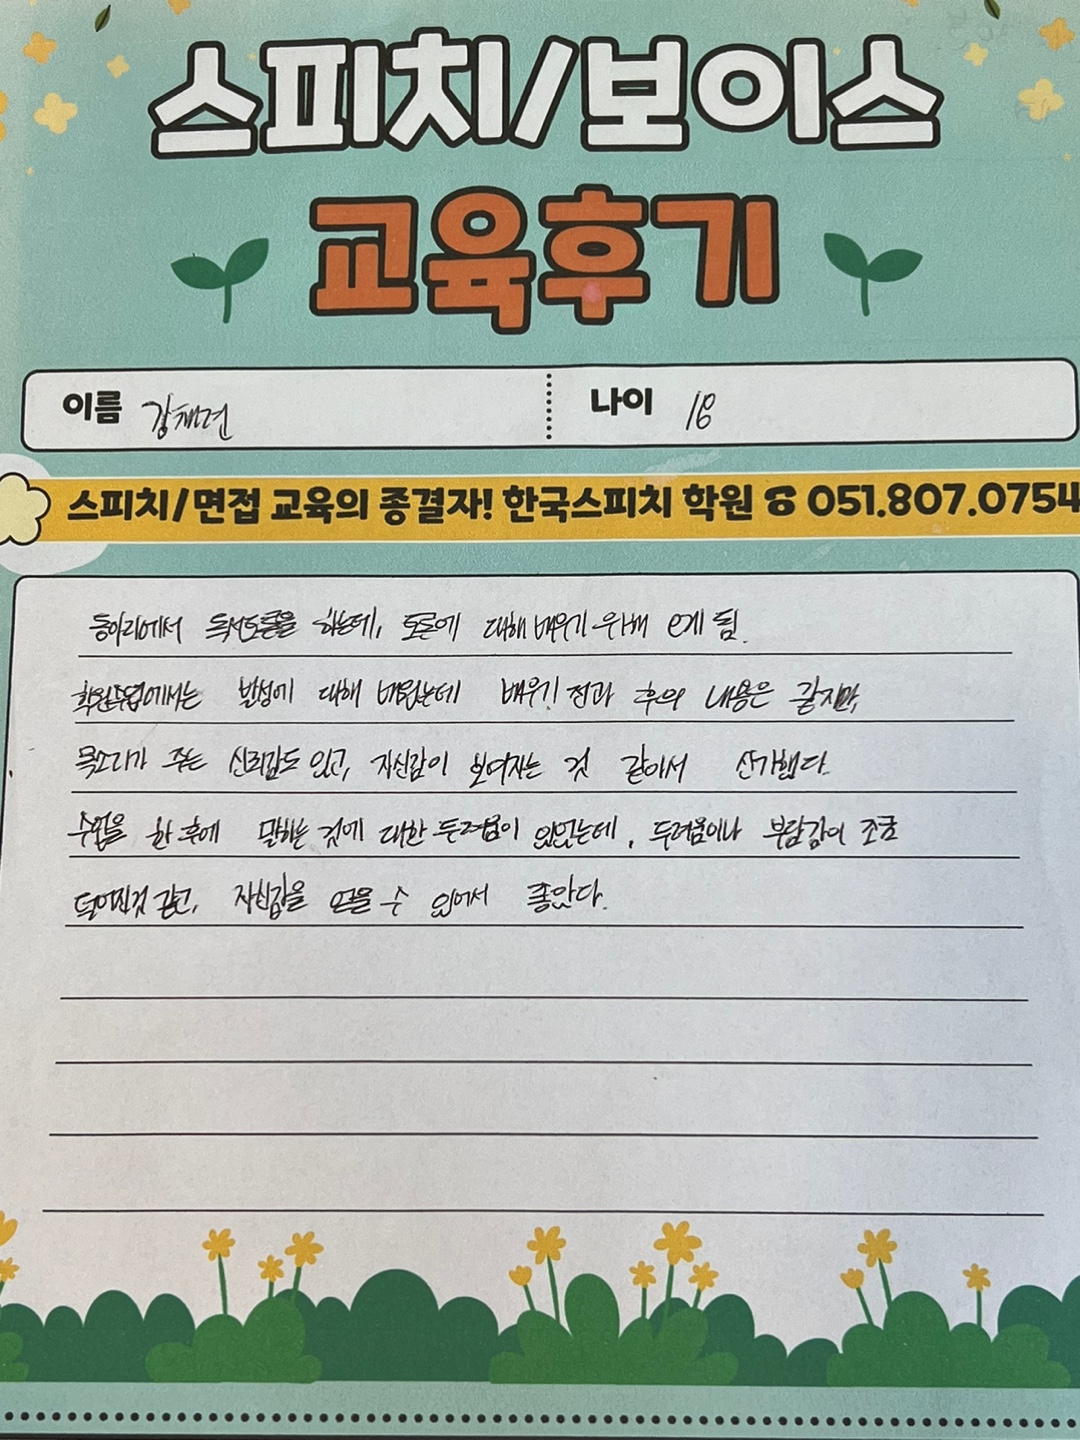 스피치/보이스
교육후기
이름 강채련 나이 18
스피치/면접 교육의 종결자! 한국스피치 학원 ☎ 051.807.0754
동아리에서 독서토론을 하는데, 토론에 대해 배우기 위해 오게 됨.
학원수업에서는 발성에 대해 배웠는데 배우기 전과 후의 내용은 같지만,
목소리가 주는 신뢰감도 있고, 자신감이 보여지는 것 같아서 신기했다.
수업을 한 후에 말하는 것에 대한 두려움이 있었는데, 두려움이나 부담감이 조금
덜어진것 같고, 자신감을 얻을 수 있어서 좋았다.